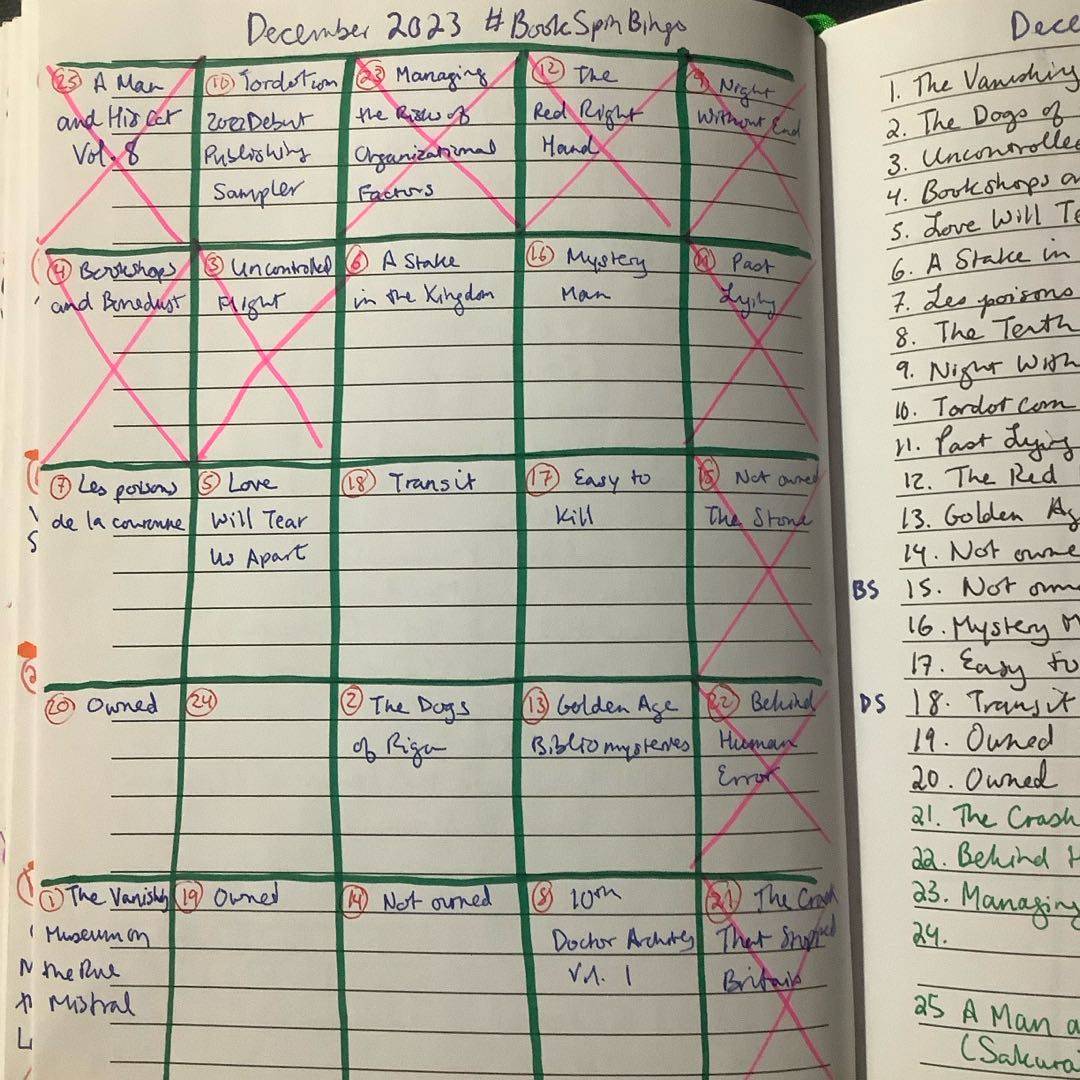 December 2023 #BookSpinBingo
25 A Man
and His Cat
Vol. 8
10 Tordotcom
2022 Debut
Publishing
Sampler
23 Managing
the Risks of
Organizational
Factors
12 The
Red Right
Hand
9 Night
Without End
4 Bookshops
and Bonedust
3 Uncontrolled
Flight
6 A Stake
in the Kingdom
16 Mystery
Man
11 Past
Lying
7 Les poisons
de la couronne
5 Love
Will Tear
Us Apart
18 Transit
17 Easy to
Kill
15 Not owned
The Stone
20 Owned
24
2 The Dogs
of Riga
13 Golden Age
Bibliomysteries
22 Behind
Human
Error
1 The Vanishing
Museum on
the Rue
Mistral
19 Owned
14 Not owned
8 10th
Doctor Archives
Vol. 1
21 The Crash
That Stopped
Britain
Dece
1. The Vanishing
2. The Dogs of
3. Uncontrolle
4. Bookshops a
5. Love Will Te
6. A Stake in
7. Les poisons
8. The Tenth
9. Night With
10. Tordotcom
11. Past Lying
12. The Red
13. Golden Ag
14. Not owne
BS 15. Not owne
16. Mystery M
17. Easy to
DS 18. Transit
19. Owned
20. Owned
21. The Crash
22. Behind H
23. Managing
24.
25 A Man a
(Sakura